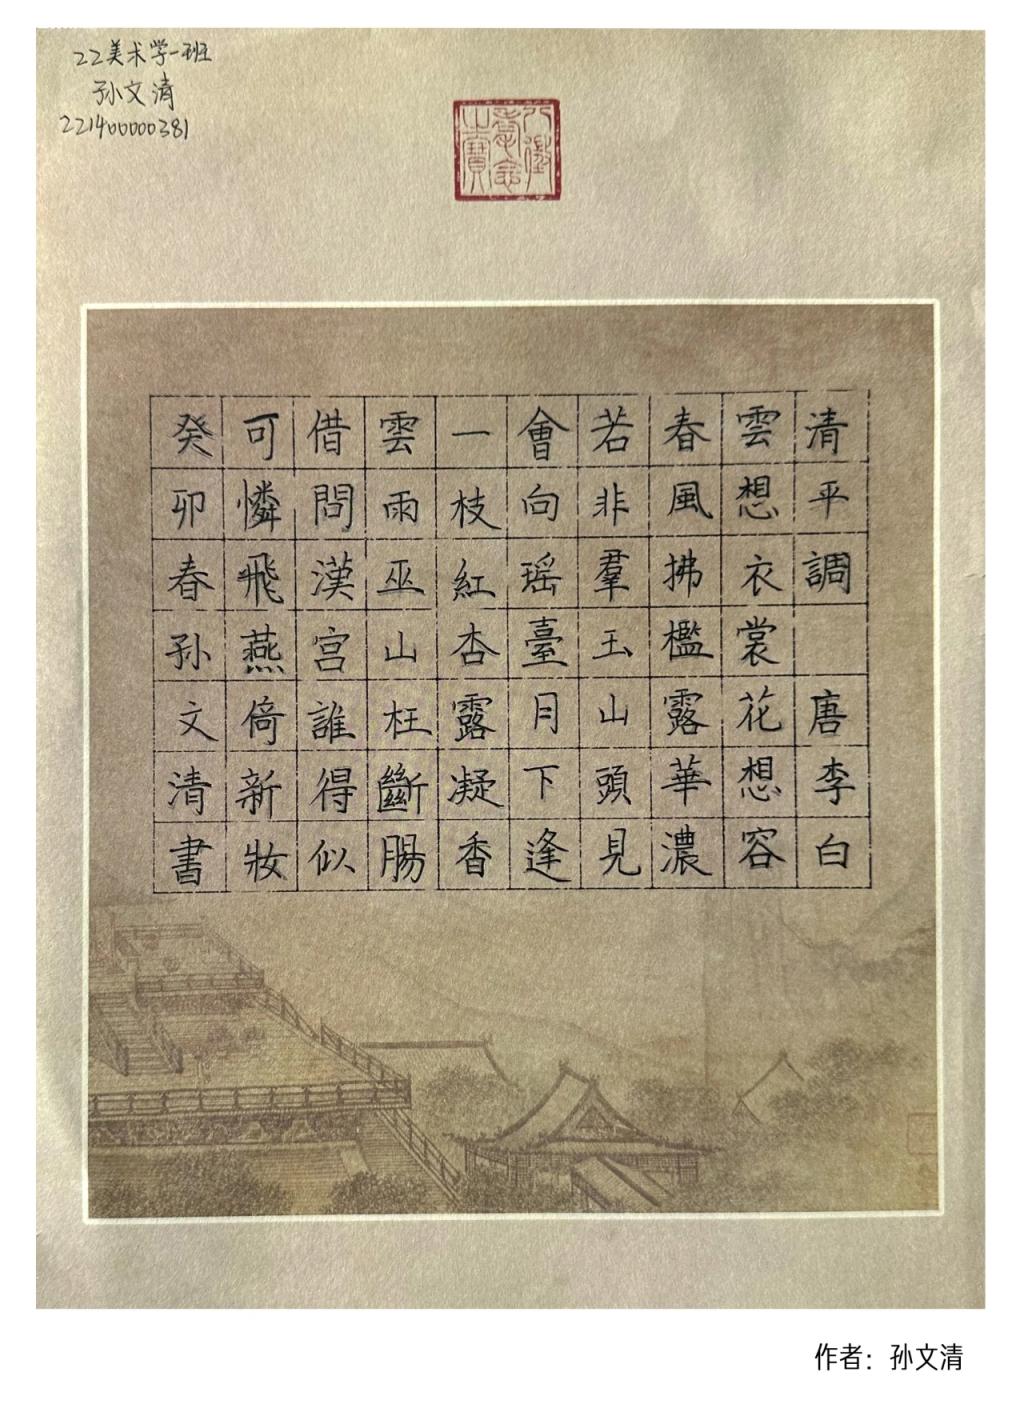 22美术学一班
孙文清
221400000381
八徵耄念之寶
清平調 唐李白
雲想衣裳花想容
春風拂檻露華濃
若非羣玉山頭見
會向瑶臺月下逢
一枝紅杏露凝香
雲雨巫山枉斷腸
借問漢宫誰得似
可憐飛燕倚新妝
癸卯春孙文清書
作者：孙文清